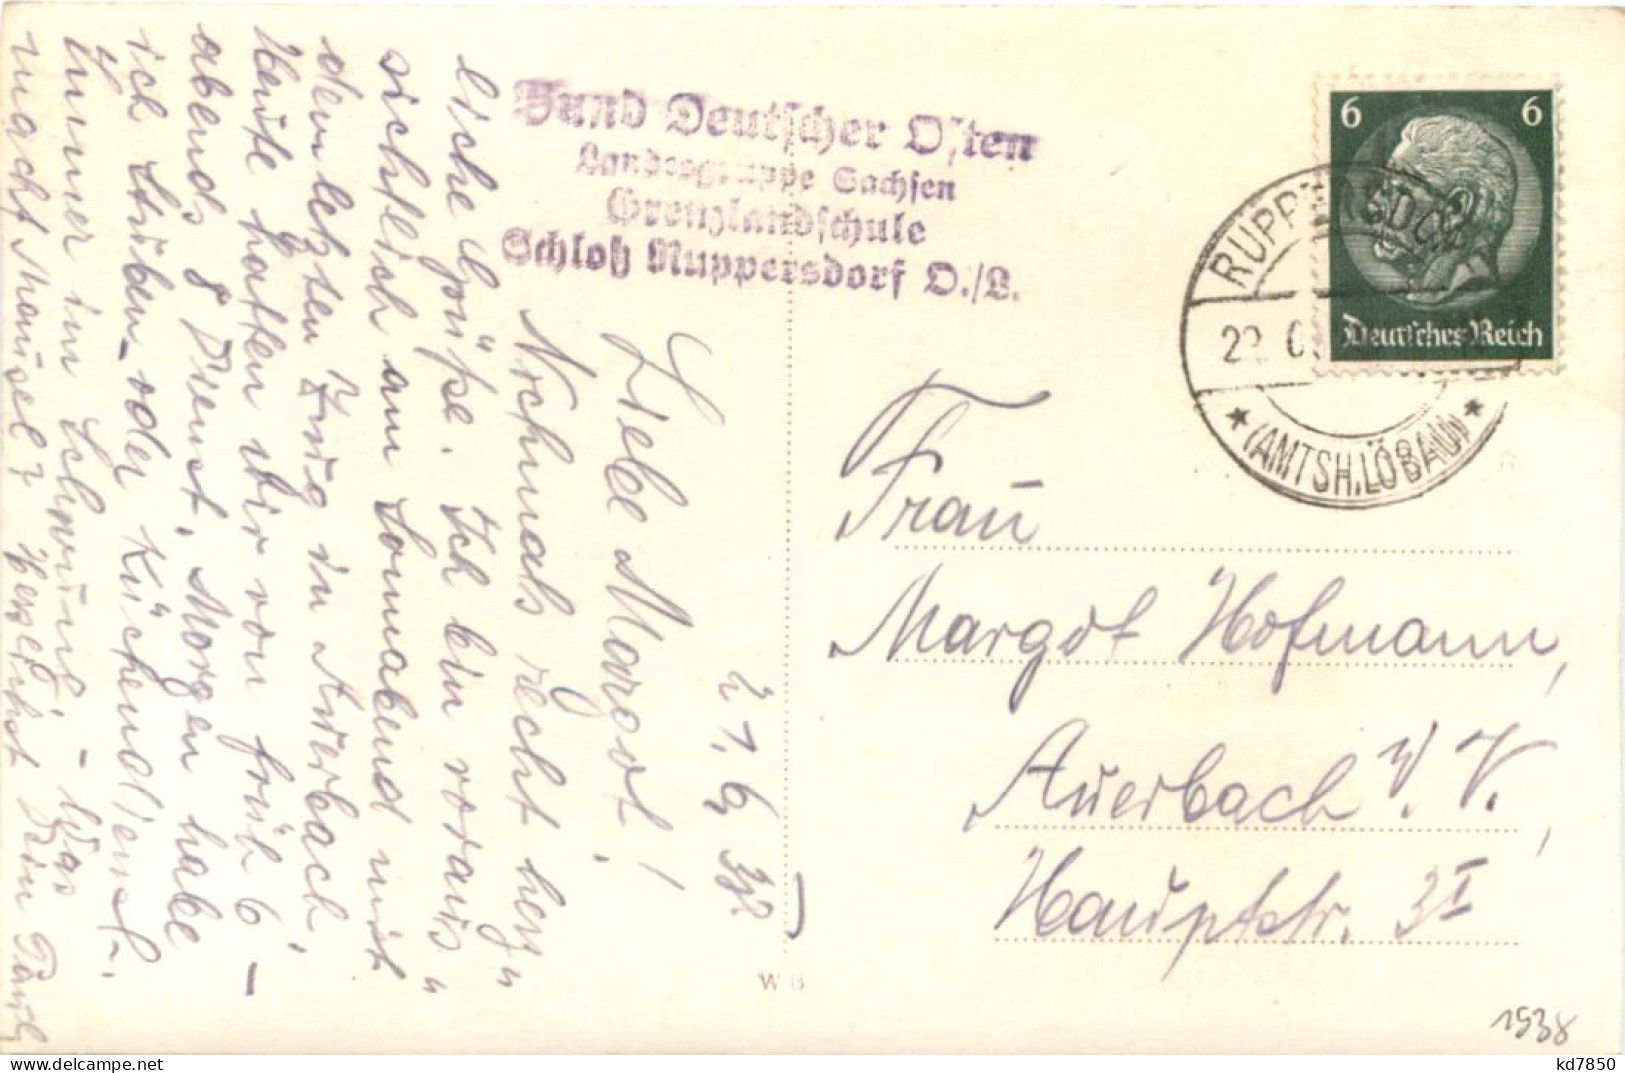 Bund Deutscher Osten
Landesgruppe Sachsen
Grenzlandschule
Schloß Ruppersdorf O./L.
6 6
Deutsches Reich
RUPPERSDORF
22.
★ (AMTSH. LÖBAU) ★
21. 6. 38
Liebe Margot!
Nochmals recht herz„
liche Grüße. Ich bin voraus„
sichtlich am Sonnabend mit
dem letzten Zug in Auerbach.
Heute hatten wir von früh 6 –
abends 8 Dienst. Morgen habe
ich Stuben- oder Küchendienst.
Immer im Schwung. – Was
macht Mausel? Herzlichst Dein
Frau
Margot Hofmann,
Auerbach i. V.,
Hauptstr.
W B
1938
kd7850